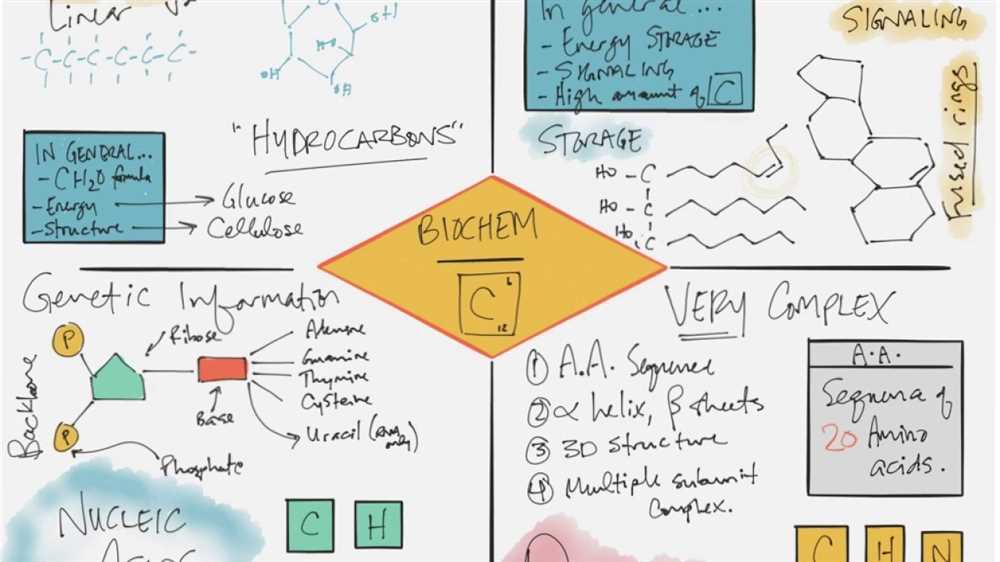 Linear
-C-C-C-C-C-C-
OH
HO
OH
OH
"HYDROCARBONS"
IN GENERAL...
- CH2O formula
- Energy
- Structure
Glucose
Cellulose
In general...
- Energy STORAGE
- SIGNALING
- High amount of C
SIGNALING
Fused rings
STORAGE
HO - C
HO - C
HO C
BIOCHEM
6
C
12
Genetic Information
Backbone
P
P
Ribose
Base
Phosphate
Adenine
Guanine
Thymine
Cysteine
Uracil (RNA only)
NUCLEIC
ACIDS
C
H
VERY COMPLEX
1 A.A. Sequence
2 α helix, β sheets
3 3D Structure
4 Multiple subunit
Complex.
A.A.
Sequence of
20 Amino
acids.
C
H
N